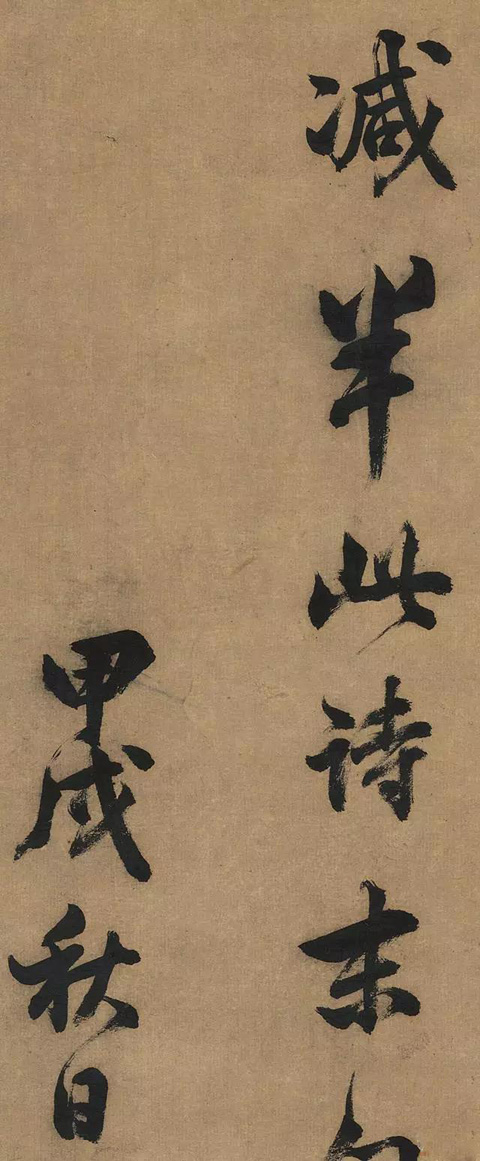 減半此詩末
甲戌秋日